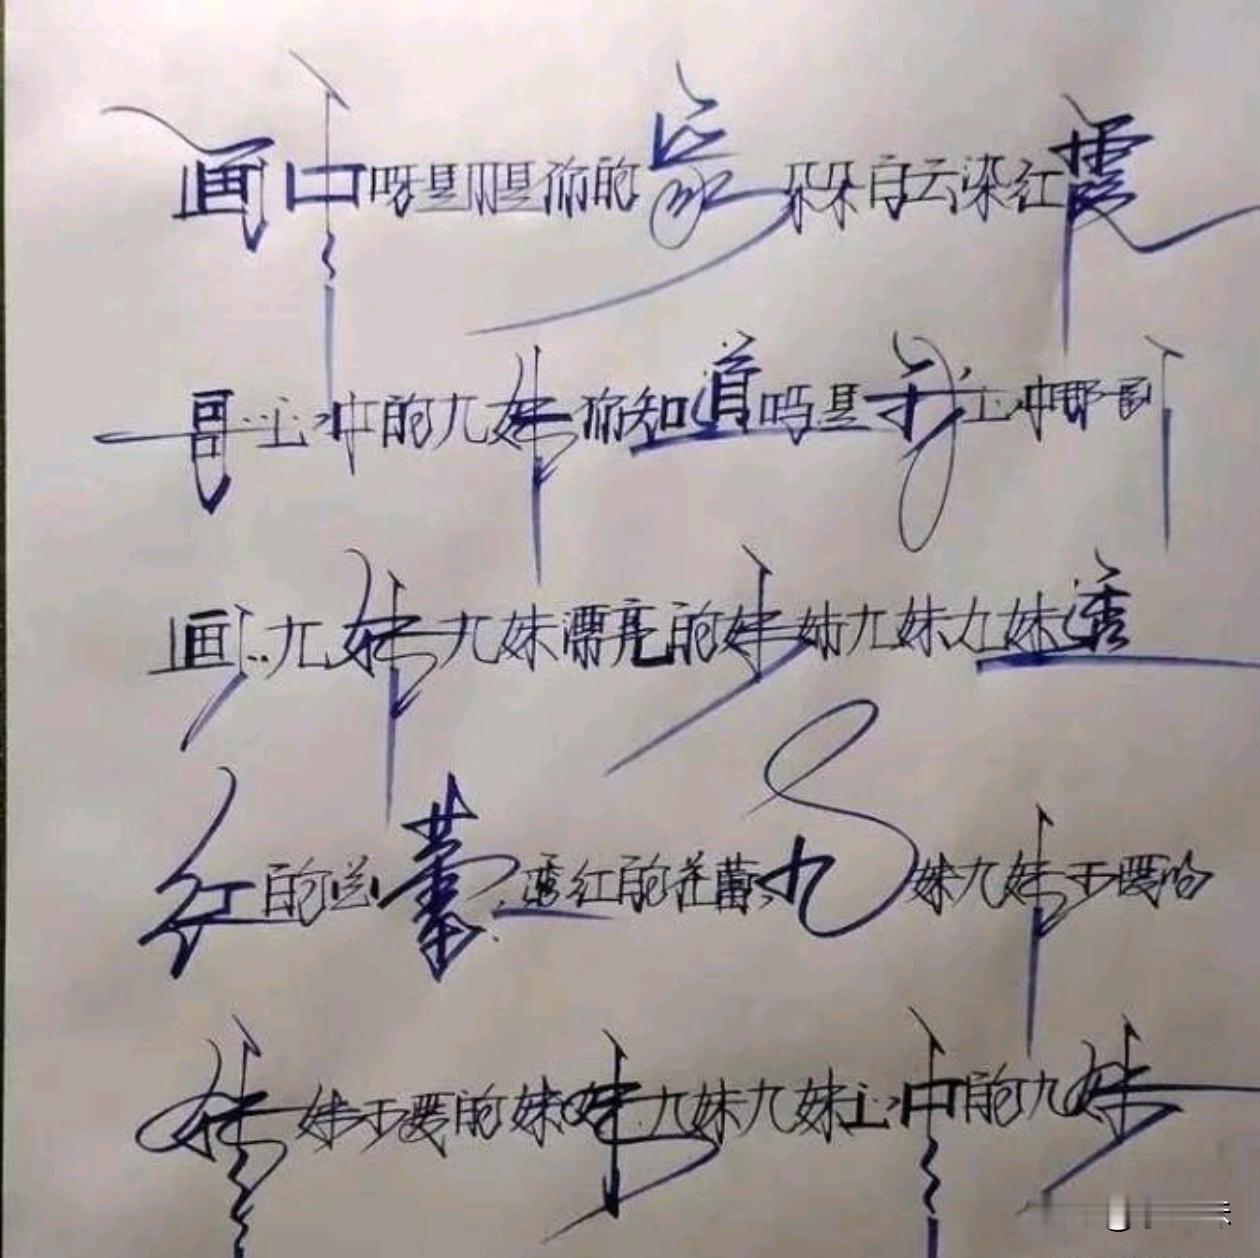 画中呀是你的家朵朵白云染红霞
哥心中的九妹你知道吗是我心中那一副
画九妹九妹漂亮的妹妹九妹九妹透
红的花蕾透红的花蕾九妹九妹可爱的
妹妹可爱的妹妹九妹九妹心中的九妹